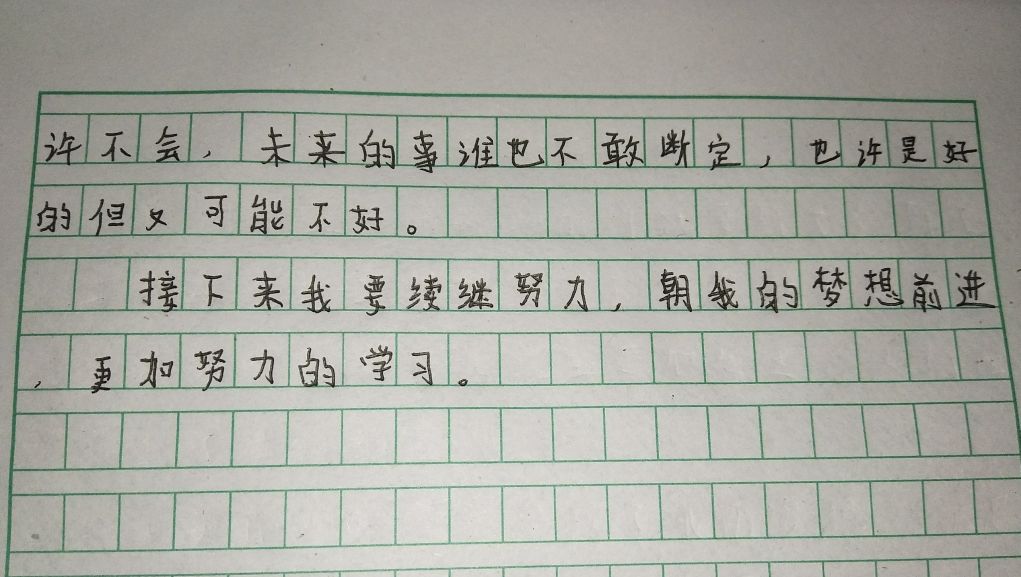 许不会，未来的事谁也不敢断定，也许是好
的但又可能不好。
接下来我要续继努力，朝我的梦想前进
，更加努力的学习。